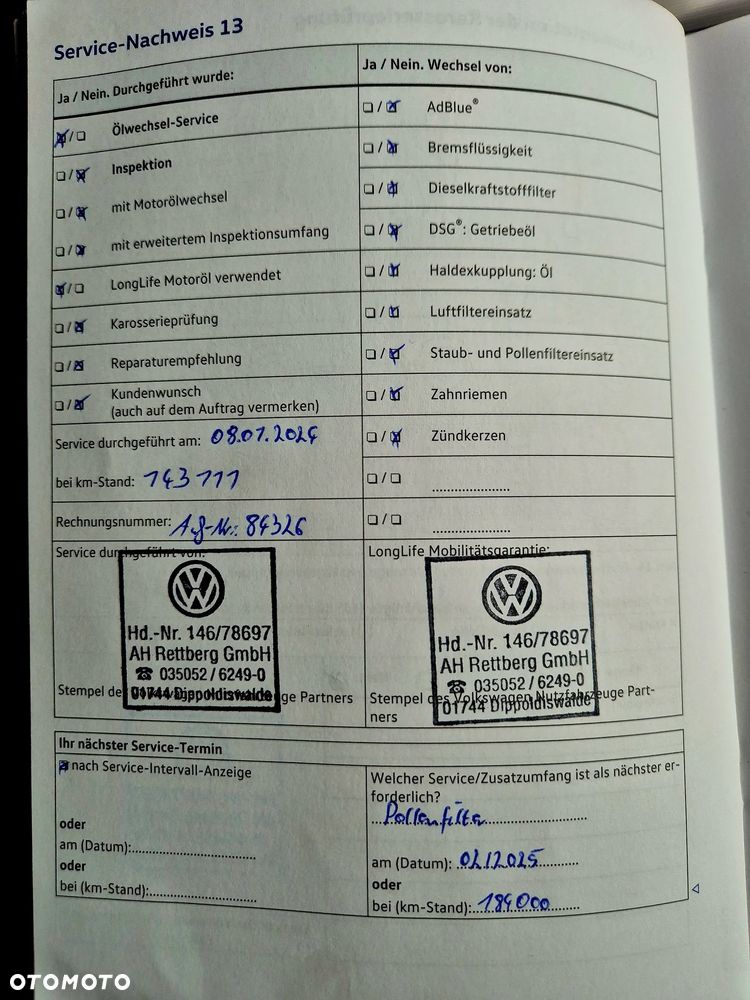 Service-Nachweis 13
Ja / Nein. Durchgeführt wurde:
Ölwechsel-Service
Inspektion
mit Motorölwechsel
mit erweitertem Inspektionsumfang
LongLife Motoröl verwendet
Karosserieprüfung
Reparaturempfehlung
Kundenwunsch
(auch auf dem Auftrag vermerken)
Service durchgeführt am: 08.07.2024
bei km-Stand: 143 111
Rechnungsnummer: Auf-Nr.: 84326
Ja / Nein. Wechsel von:
AdBlue®
Bremsflüssigkeit
Dieselkraftstofffilter
DSG®: Getriebeöl
Haldexkupplung: Öl
Luftfiltereinsatz
Staub- und Pollenfiltereinsatz
Zahnriemen
Zündkerzen
Service durchgeführt von:
Hd.-Nr. 146/78697
AH Rettberg GmbH
☎ 035052 / 6249-0
01744 Dippoldiswalde
Stempel des Volkswagen Nutzfahrzeuge Partners
LongLife Mobilitätsgarantie:
Hd.-Nr. 146/78697
AH Rettberg GmbH
☎ 035052 / 6249-0
01744 Dippoldiswalde
Stempel des Volkswagen Nutzfahrzeuge Part-
ners
Ihr nächster Service-Termin
nach Service-Intervall-Anzeige
oder
am (Datum):
oder
bei (km-Stand):
Welcher Service/Zusatzumfang ist als nächster er-
forderlich?
Pollenfilter
am (Datum): 02.12.2025
oder
bei (km-Stand): 184000
OTOMOTO